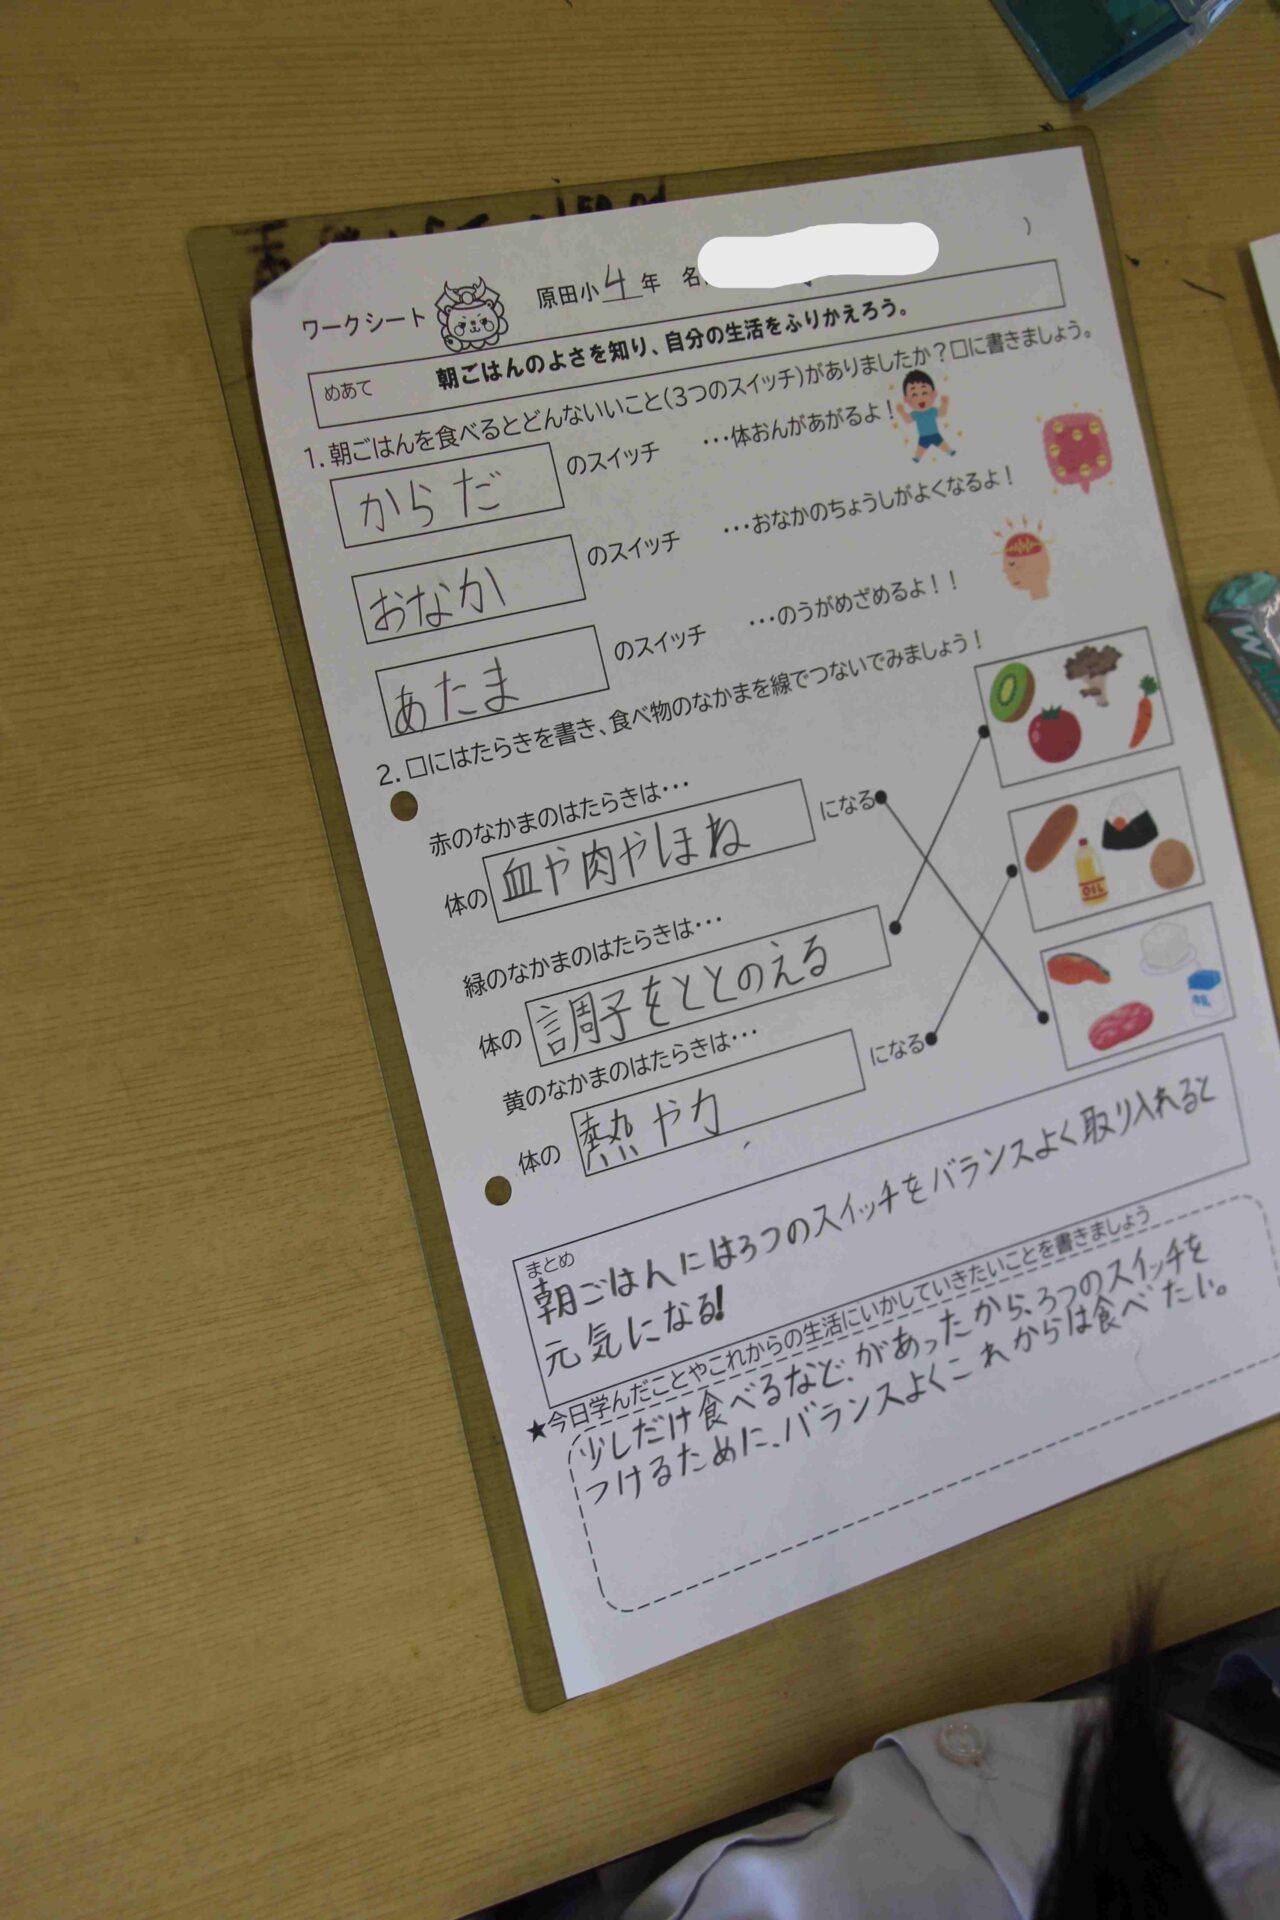 ワークシート 原田小4年 名
めあて 朝ごはんのよさを知り、自分の生活をふりかえろう。
1. 朝ごはんを食べるとどんないいこと(3つのスイッチ)がありましたか?口に書きましょう。
からだ のスイッチ ・・・体おんがあがるよ!
おなか のスイッチ ・・・おなかのちょうしがよくなるよ!
あたま のスイッチ ・・・のうがめざめるよ!!
2. 口にはたらきを書き、食べ物のなかまを線でつないでみましょう!
赤のなかまのはたらきは・・・
体の 血や肉やほね になる
緑のなかまのはたらきは・・・
体の 調子をととのえる
黄のなかまのはたらきは・・・
体の 熱や力 になる
OIL
牛乳
まとめ
朝ごはんには3つのスイッチをバランスよく取り入れると
元気になる!
★今日学んだことやこれからの生活にいかしていきたいことを書きましょう
少しだけ食べるなど、があったから、3つのスイッチを
つけるために、バランスよくこれからは食べたい。